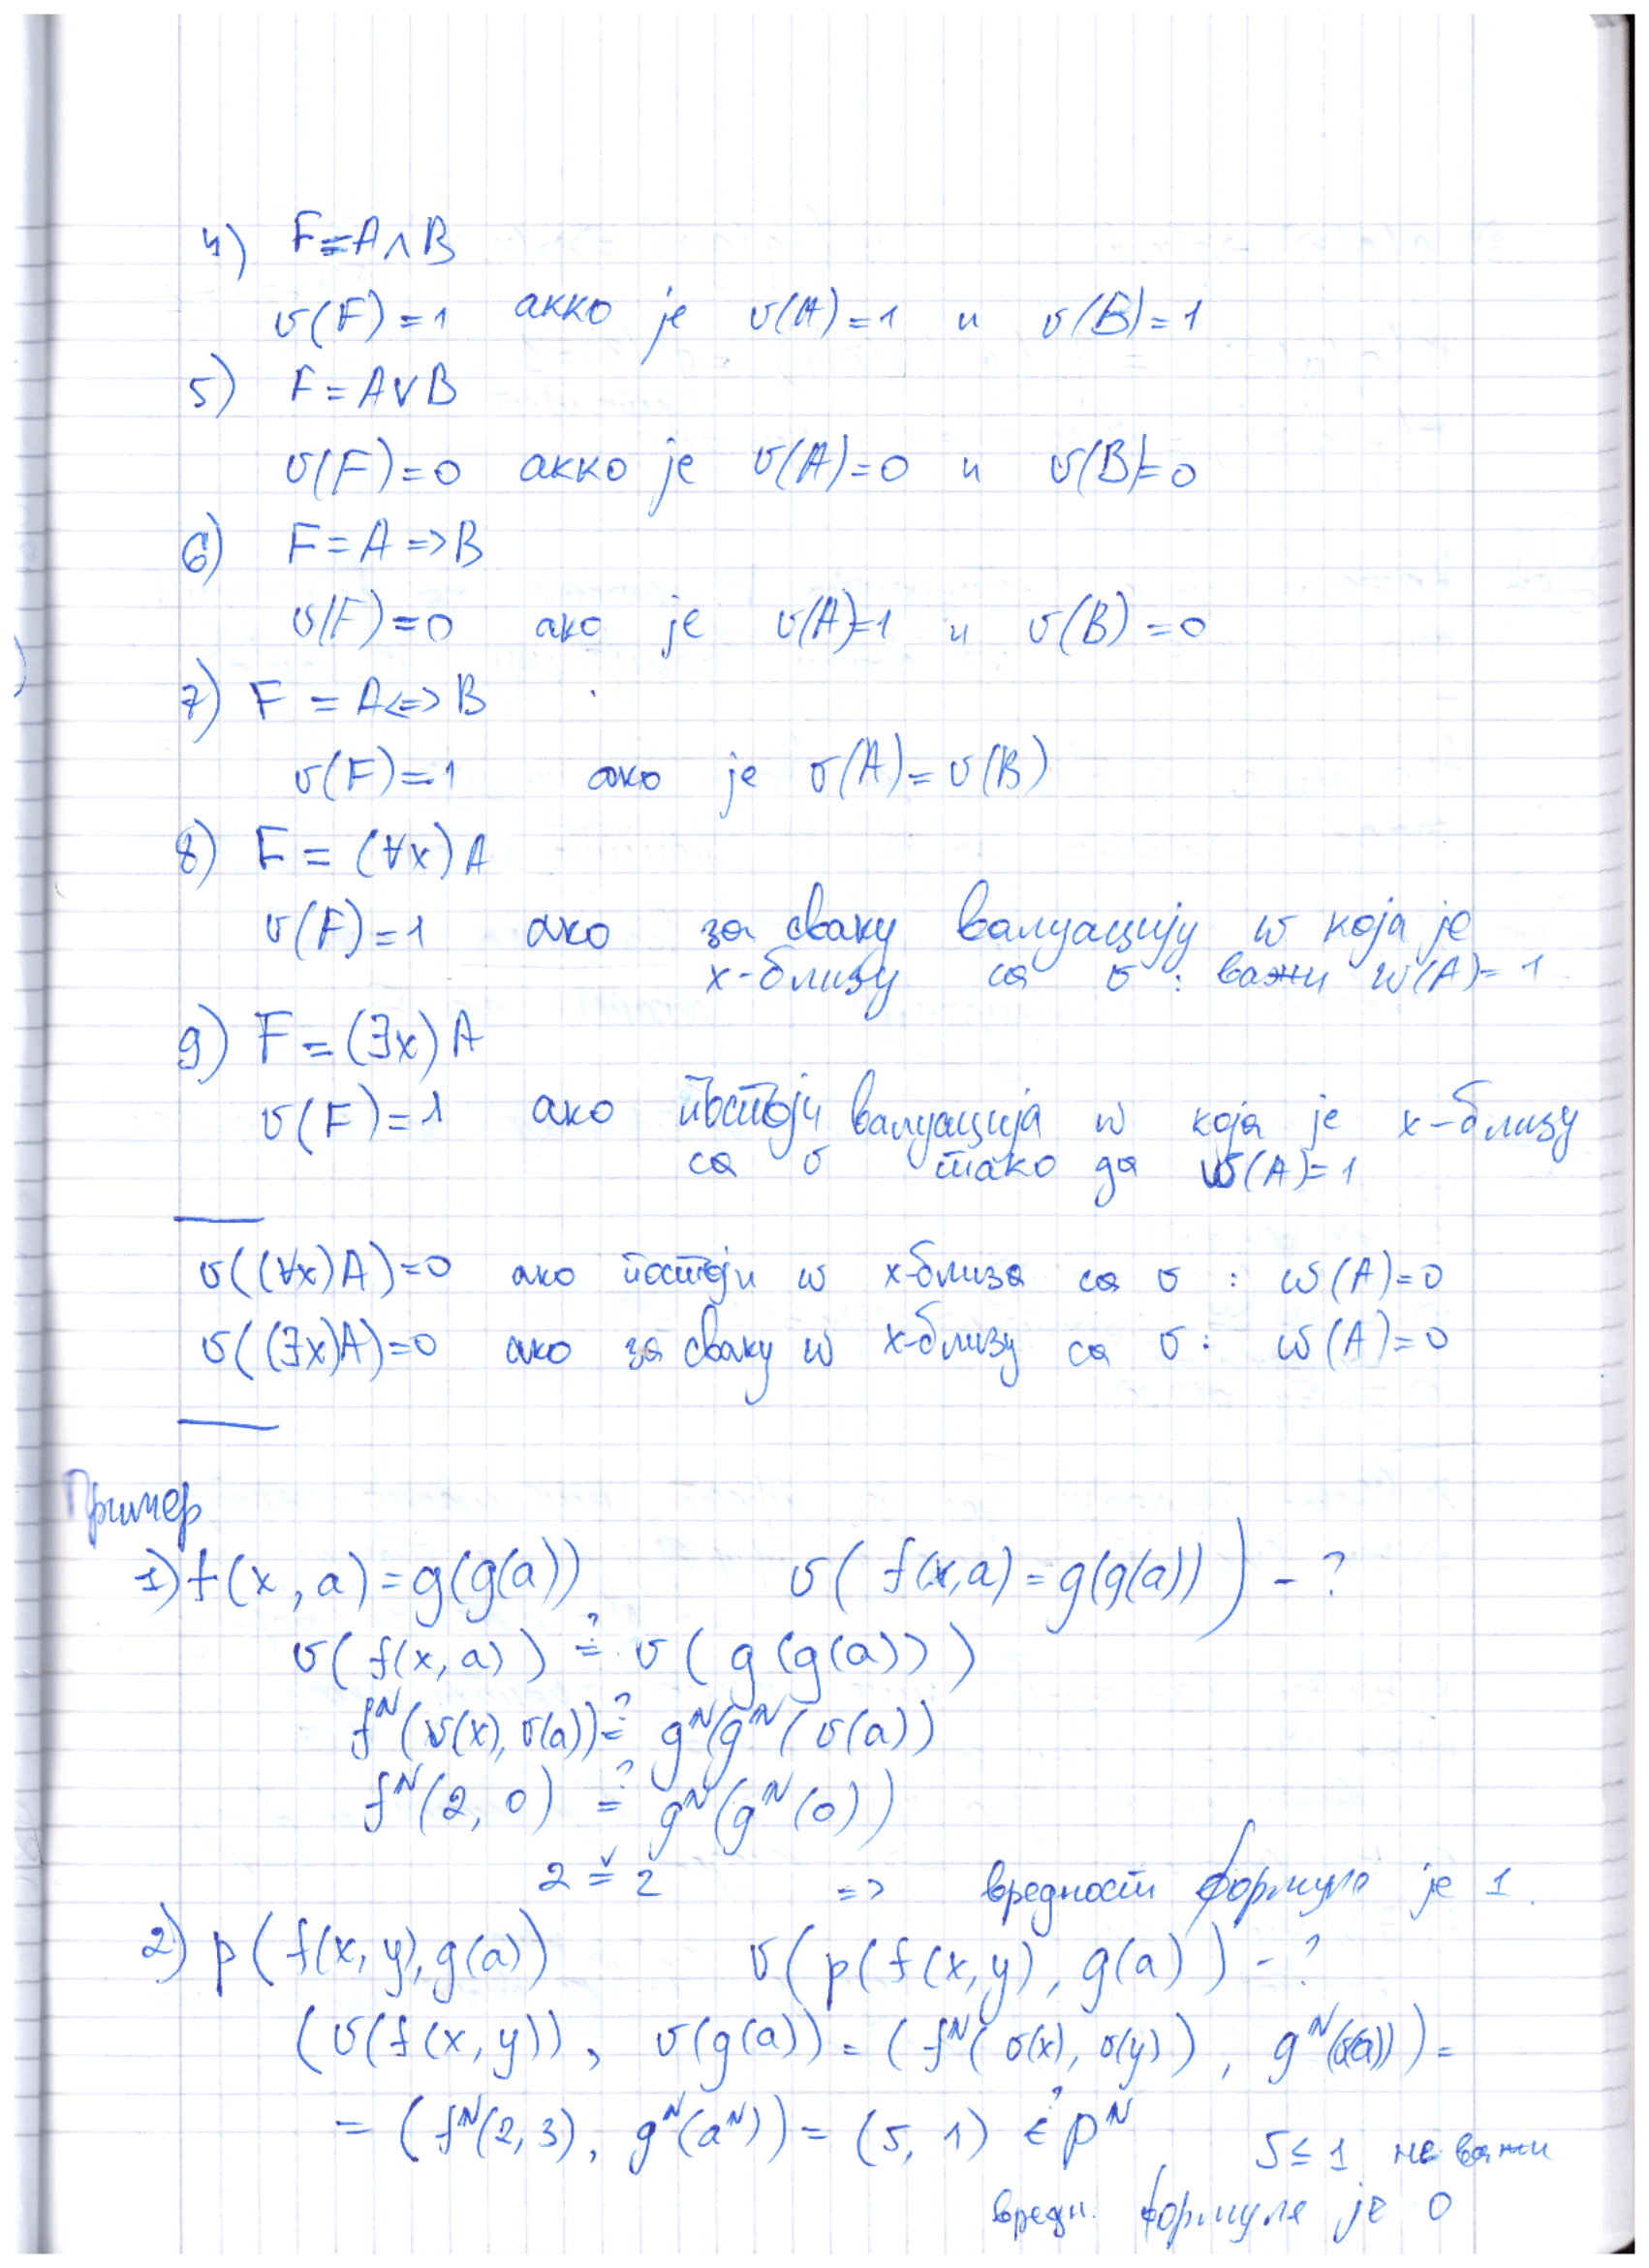 4) F=A∧B
v(F)=1 акко је v(A)=1 и v(B)=1
5) F=A∨B
v(F)=0 акко је v(A)=0 и v(B)=0
6) F=A=>B
v(F)=0 ако је v(A)=1 и v(B)=0
7) F=A<=>B
v(F)=1 ако је v(A)=v(B)
8) F=(∀x)A
v(F)=1 ако за сваку валуацију w која је
x-близу са v: важи w(A)=1
9) F=(∃x)A
v(F)=1 ако постоји валуација w која је x-близу
са v тако да w(A)=1
v((∀x)A)=0 ако постоји w x-близа са v : w(A)=0
v((∃x)A)=0 ако за сваку w x-близу са v : w(A)=0
Пример
1) f(x,a)=g(g(a)) v(f(x,a)=g(g(a))) - ?
v(f(x,a)) ≟ v(g(g(a)))
fᴺ(v(x), v(a)) ≟ gᴺ(gᴺ(v(a))
fᴺ(2,0) ≟ gᴺ(gᴺ(0))
2 = 2 => вредност формуле је 1.
2) p(f(x,y),g(a)) v(p(f(x,y),g(a))) - ?
(v(f(x,y)), v(g(a)) = (fᴺ(v(x), v(y)), gᴺ(v(a))) =
= (fᴺ(2,3), gᴺ(aᴺ)) = (5,1) ∈? pᴺ
5≤1 не важи
вредн. формуле је 0